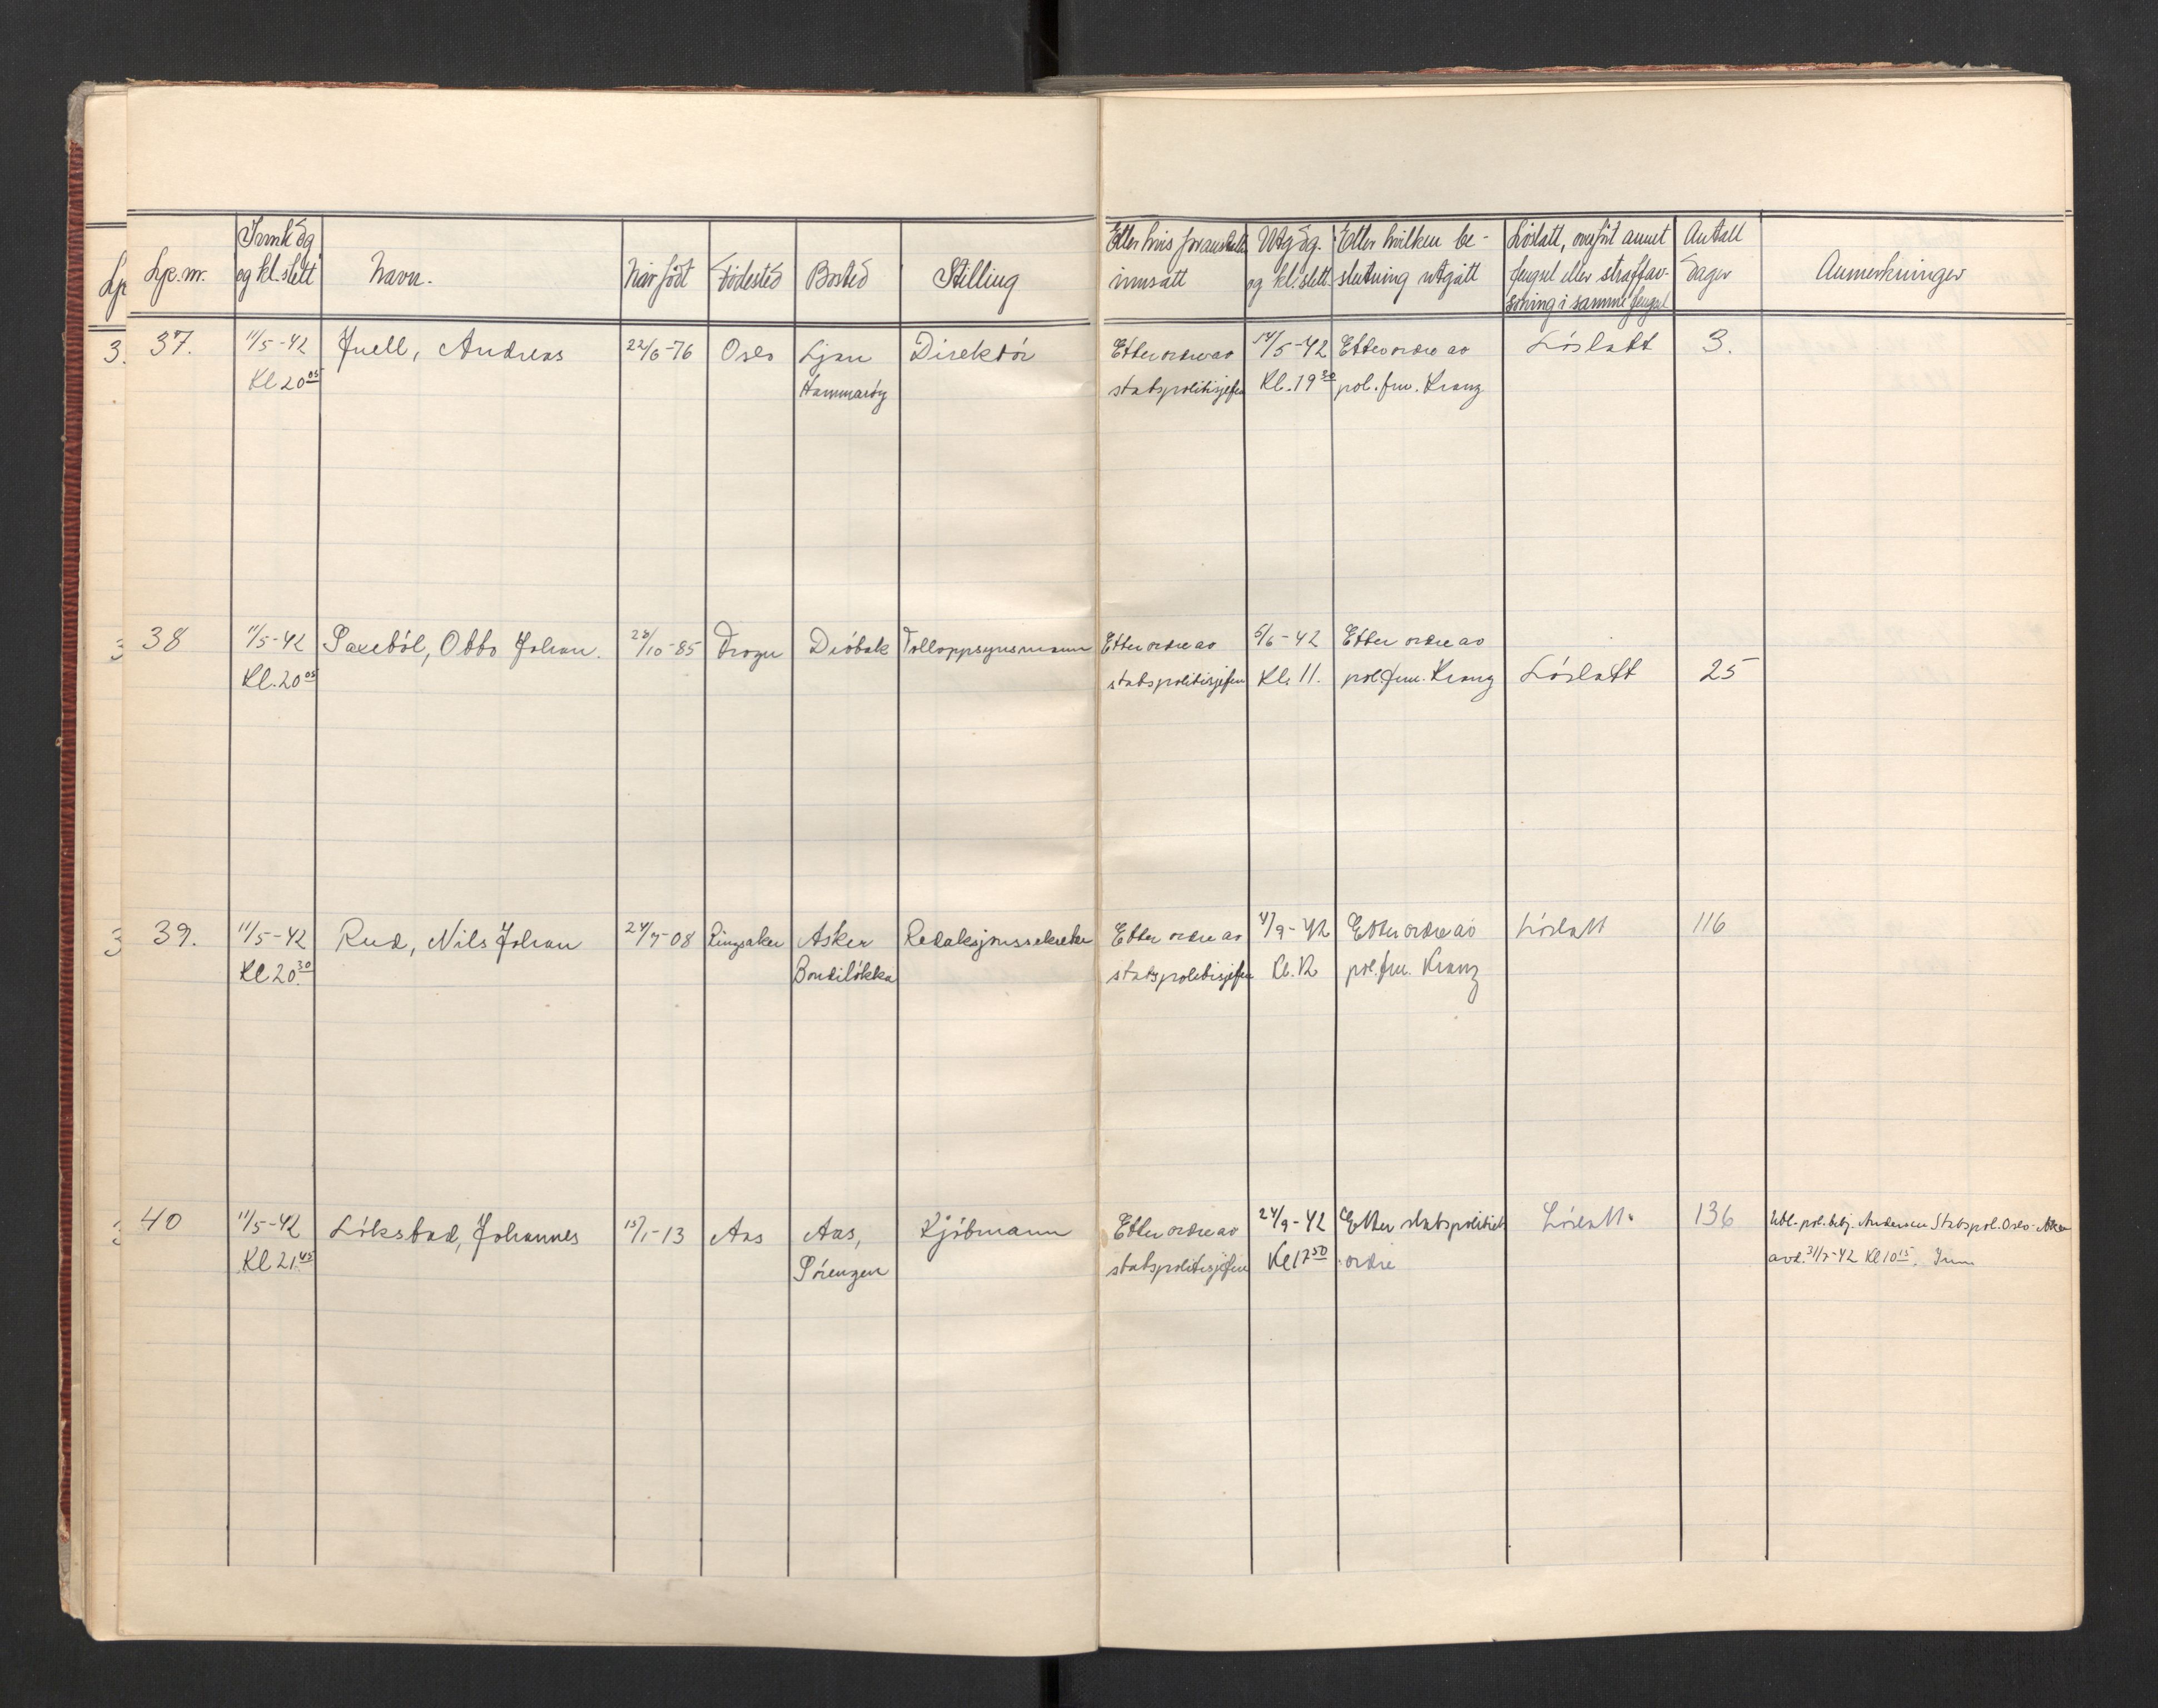 Lp. nr.
Innk. dg og kl.slett
Navn.
Når född
Födested
Bosted
Stilling
Etter hvis foranstalt. innsatt
Utg. dg. og kl.slett
Etter hvilken be-
slutning utgått
Löslatt, overfört annet
fengsel eller straffav-
soning i samme fengsel
Antall
dager
Anmerkninger
37. 11/5-42 Juell, Andreas 22/6-76 Oslo Ljan Direktör Etter ordre av 14/5-42 Etter ordre av Löslatt 3.
Kl 20 05 Hammaröy statspolitisjefen Kl. 19 30 pol. fm. Kranz
38 11/5-42 Saxeböl, Otto Johan. 28/10-85 Drögak Tolloppsynsmann Etter ordre av 5/6-42 Etter ordre av
Kl. 20 05 statspolitisjefen Kl. 11. pol. fm. Kranz Löslatt 25
39. 11/5-42 Rud, Nils Johan 24/7-08 Ringsaker Asker Redaksjonssekretær Etter ordre av 4/9-42 Etter ordre av Löslatt 116
Kl 20 30 Bondilökka statspolitisjefen Kl. 12 pol. fm. Kranz
40 11/5-42 Löksbad, Johannes 15/1-13 Aas Aas, Kjöbmann Etter ordre av 24/9-42 Etter statspolitiets Löslatt. 136 pol. betj. Andersen Statspol. Oslo-Aker
Kl 21 45 statspolitisjefen Kl 17 50 ordre avd. 31/7-42 Kl 10 15.